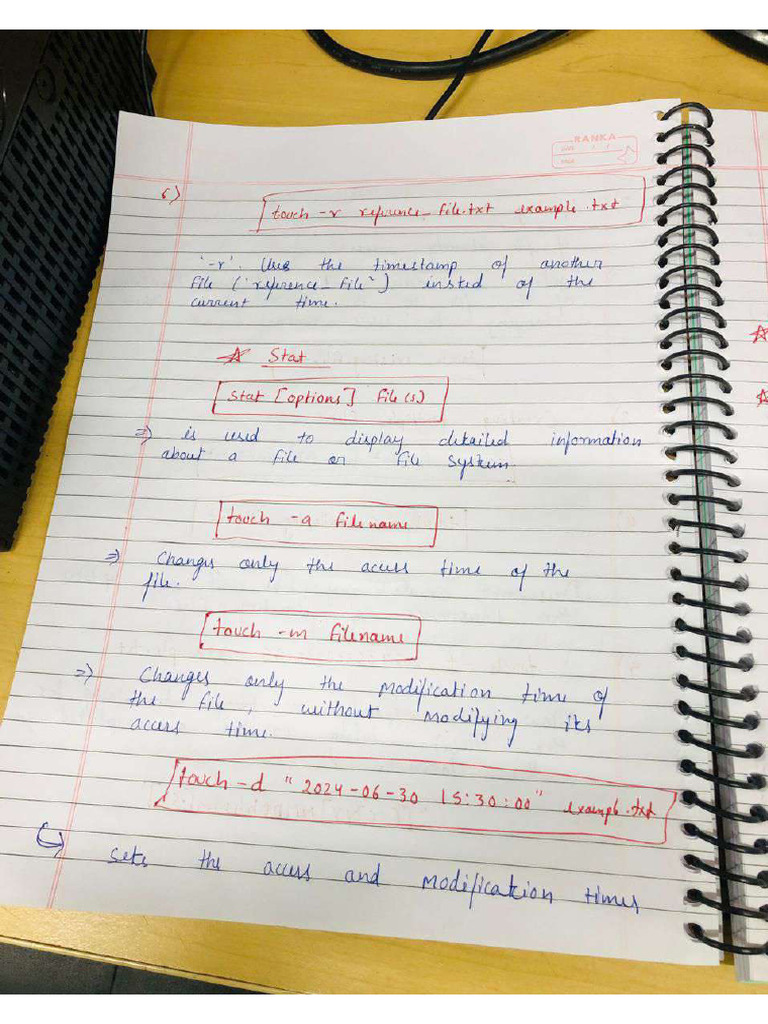 RANKA
6)
touch -r refrence_file.txt example.txt
'-r'. Uses the timestamp of another
file ('refrence_file') insted of the
current time.
☆ Stat
stat [options] file(s)
⇒ is used to display detailed information
about a file or file system
touch -a filename
⇒ Changes only the access time of the
file.
touch -m filename
⇒ Changes only the modification time of
the file, without modifying its
access time.
touch -d "2024-06-30 15:30:00" example.txt
↳ sets the access and modification times